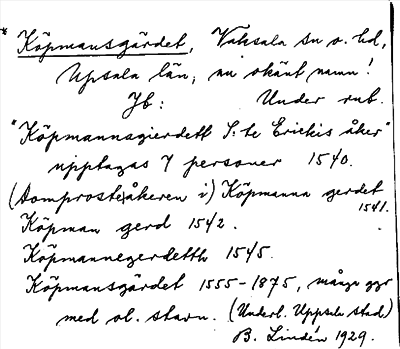 * Köpmansgärdet, Vaksala sn o. hd,
Upsala län, nu okänt namn!
Jb: Under rub.
"Köpmannsgierdett S:te Erickis åker"
upptagas 7 personer 1540.
(Domprosteåkeren i) Köpmanna gerdet 1541.
Köpman gerd 1542.
Köpmannegerdetth 1545.
Köpmansgärdet 1555-1875, många ggr
med ol. stavn. (Underl. Uppsala stad.)
B. Lindén 1929.